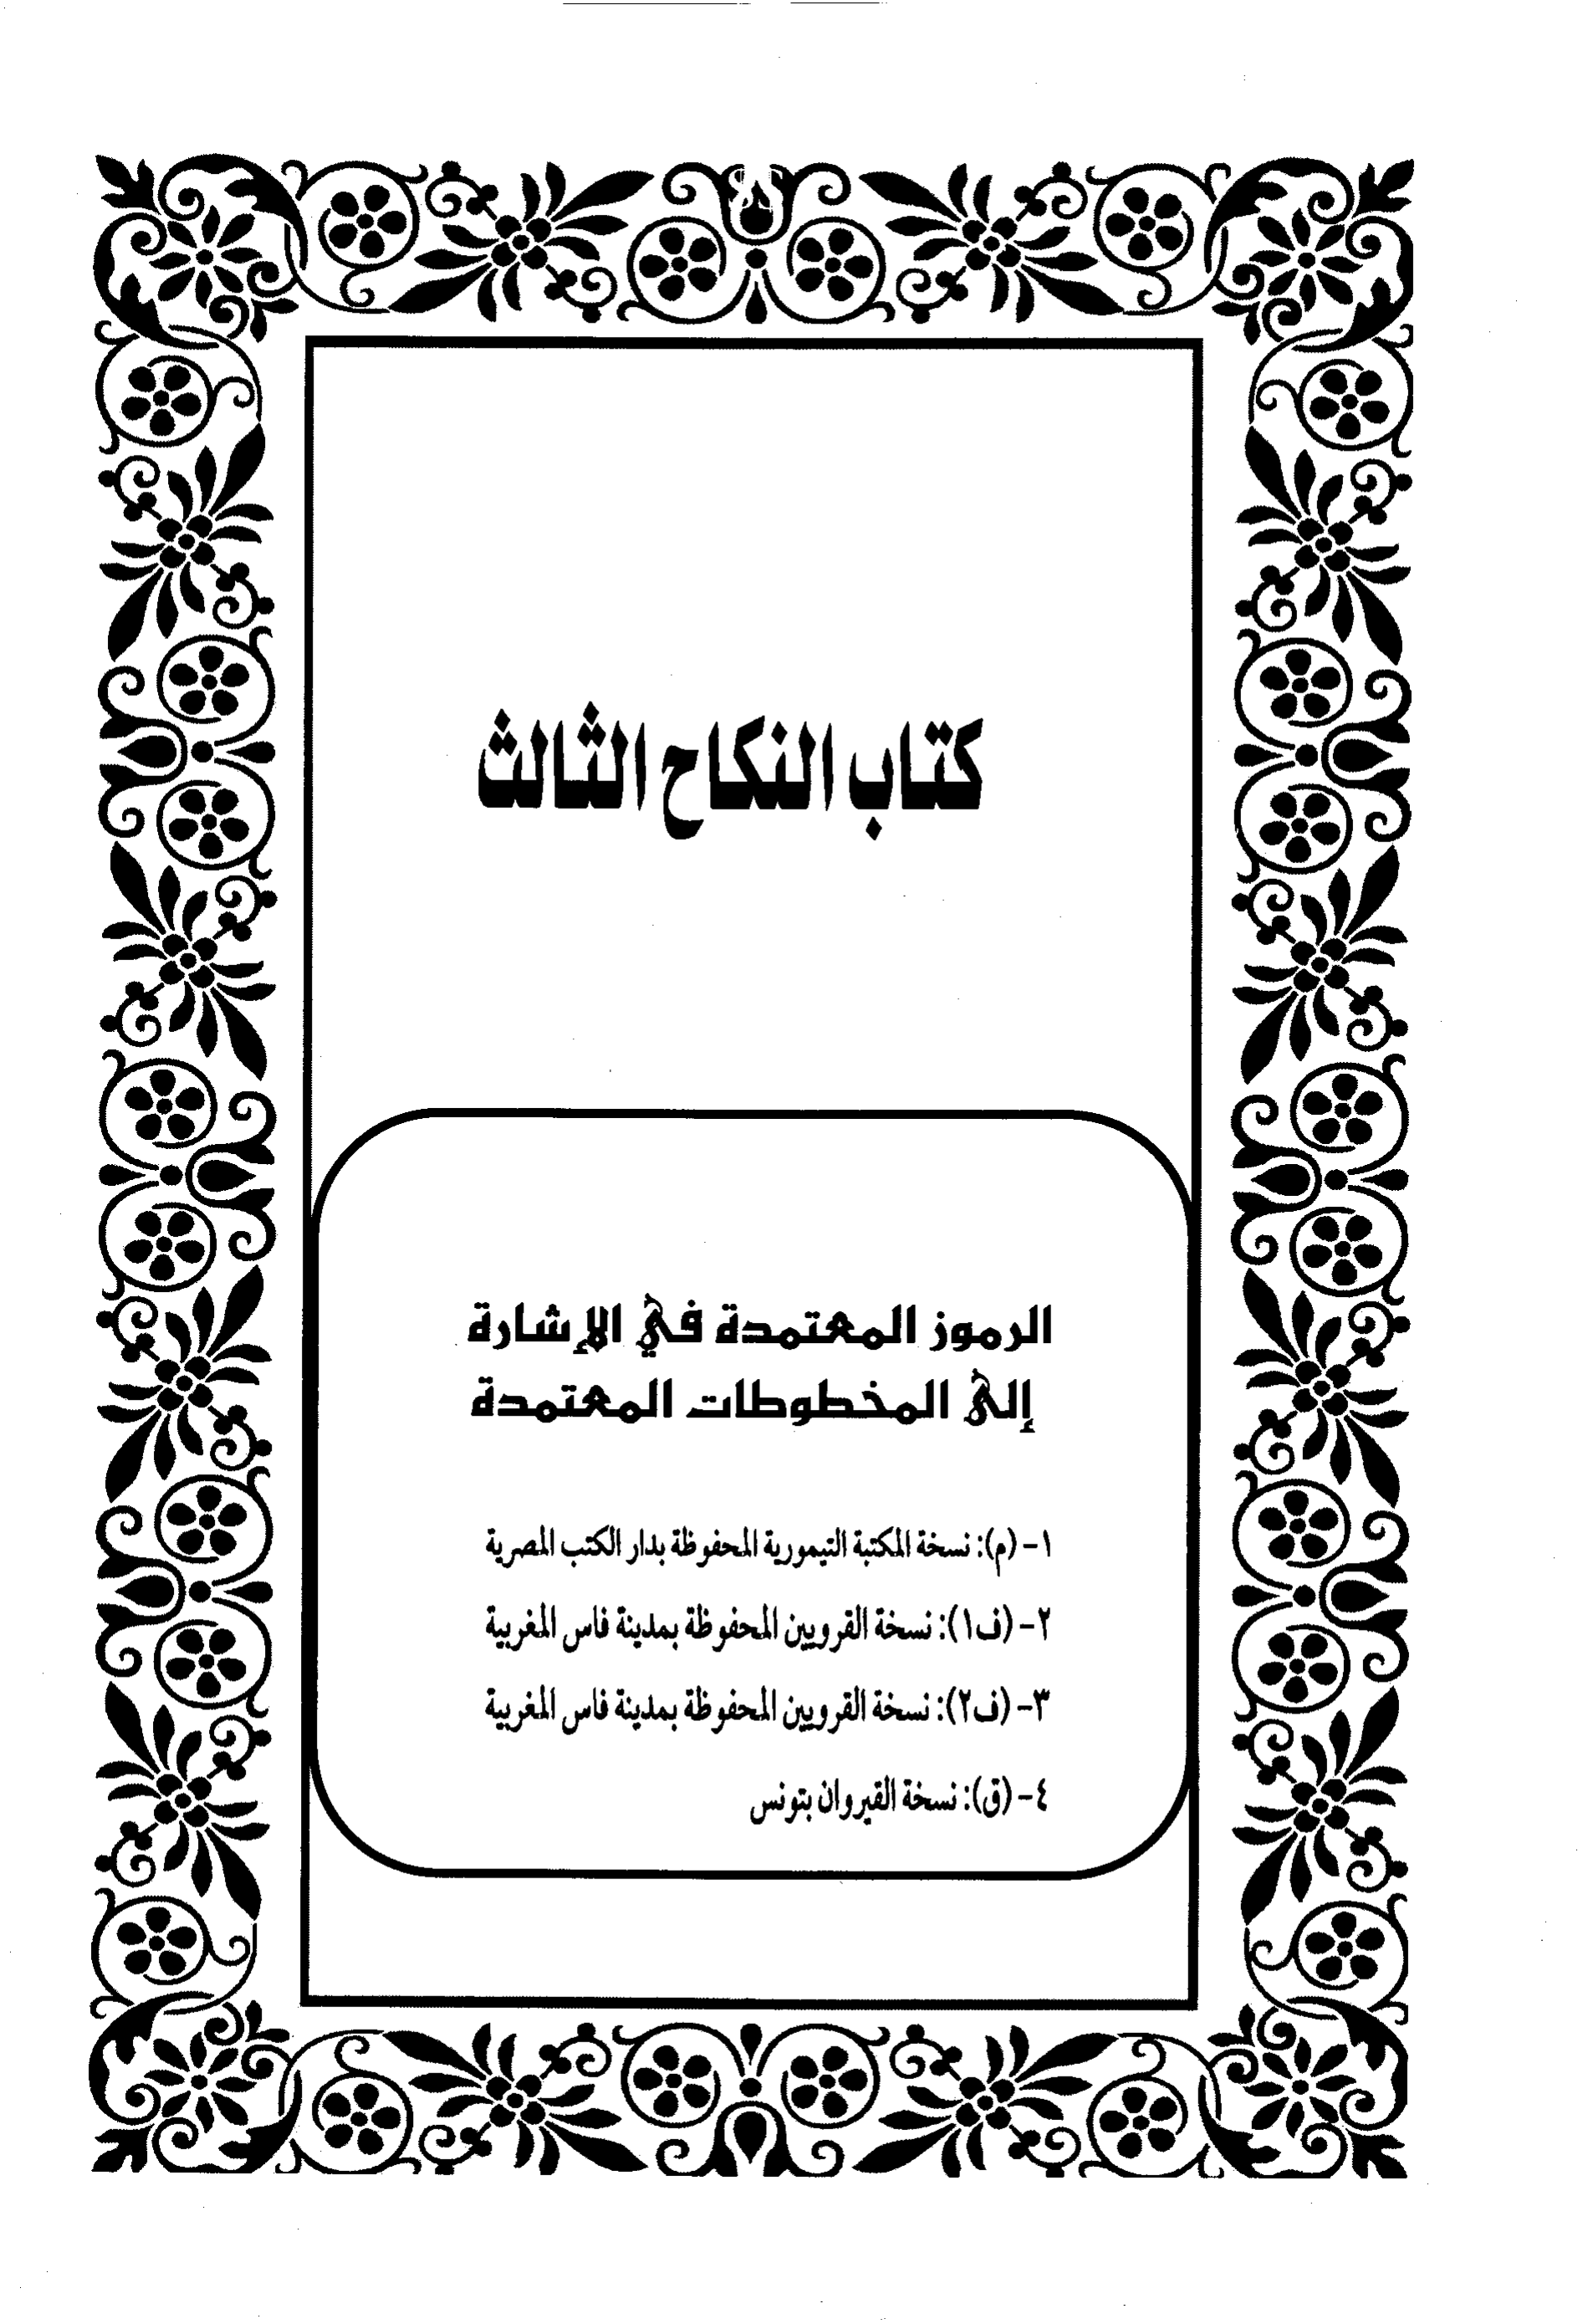 كتاب النكاح الثالث
الرموز المعتمدة في الإشارة
إلى المخطوطات المعتمدة
١- (م): نسخة المكتبة التيمورية المحفوظة بدار الكتب المصرية
٢- (ف١): نسخة القرويين المحفوظة بمدينة فاس المغربية
٣- (ف٢): نسخة القرويين المحفوظة بمدينة فاس المغربية
٤- (ق): نسخة القيروان بتونس